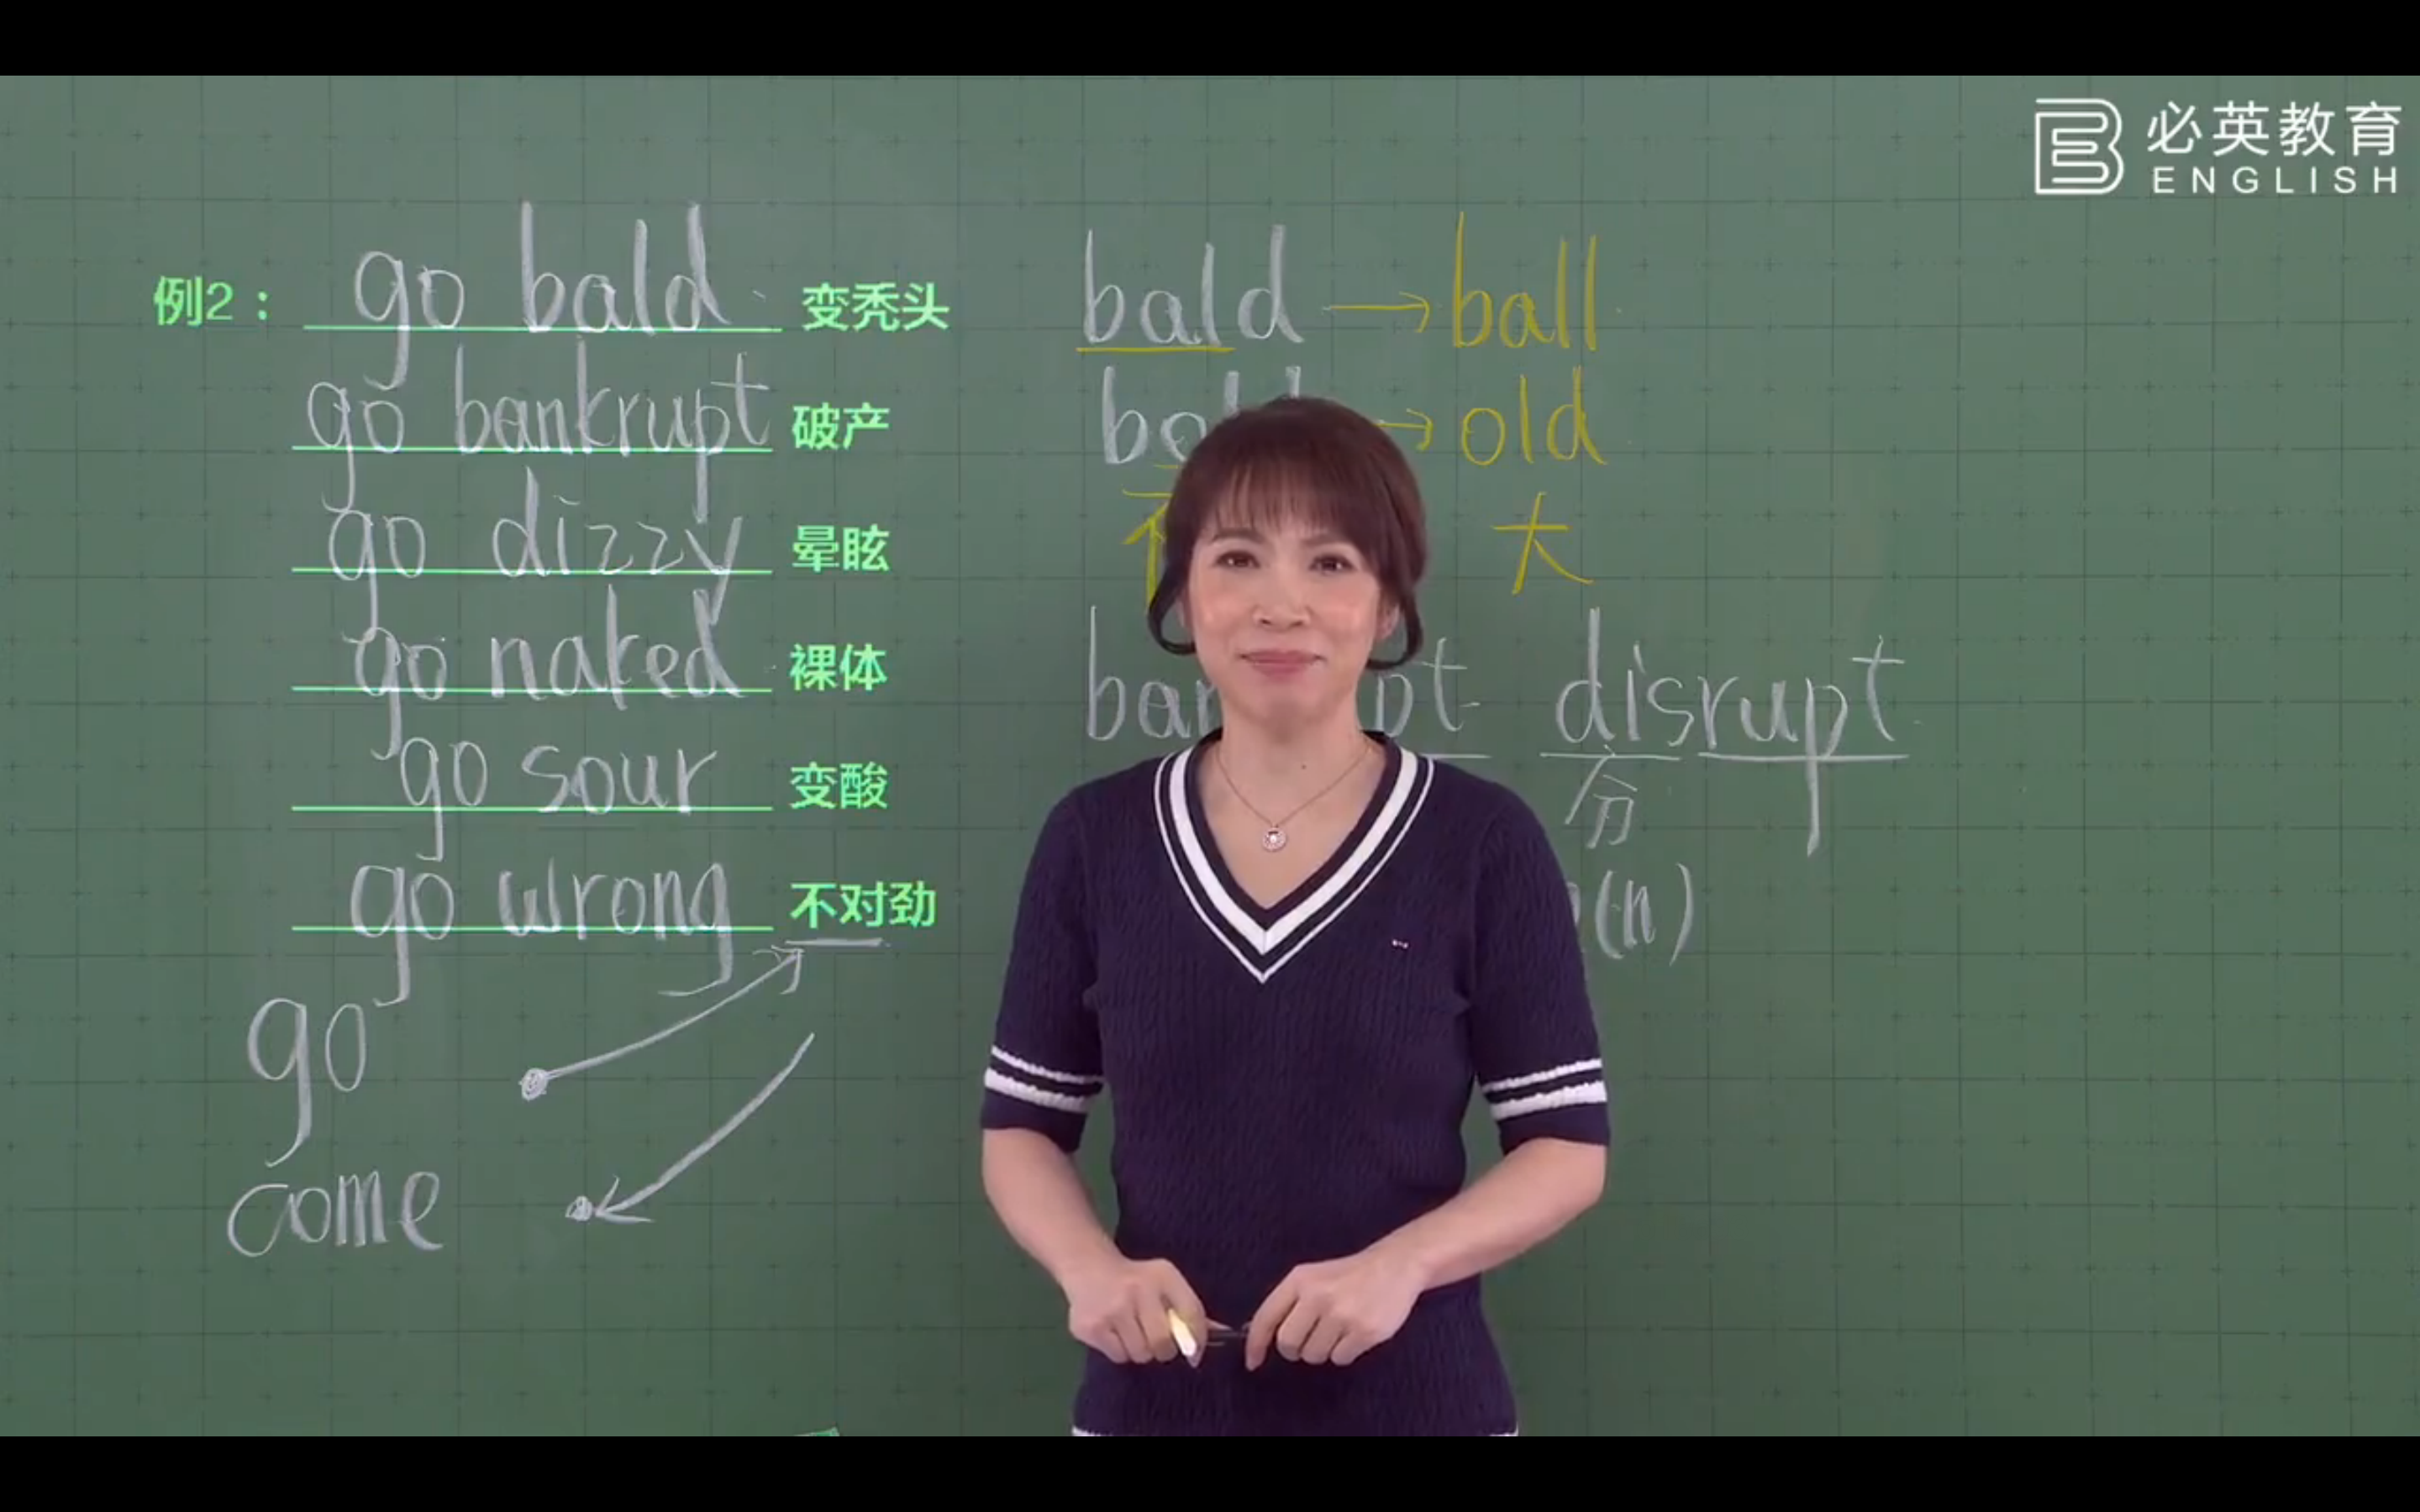 必英教育
ENGLISH
例2： go bald 变秃头
go bankrupt 破产
go dizzy 晕眩
go naked 裸体
go sour 变酸
go wrong 不对劲
go
come
bald → ball
→ old
大
disrupt
分
(n)